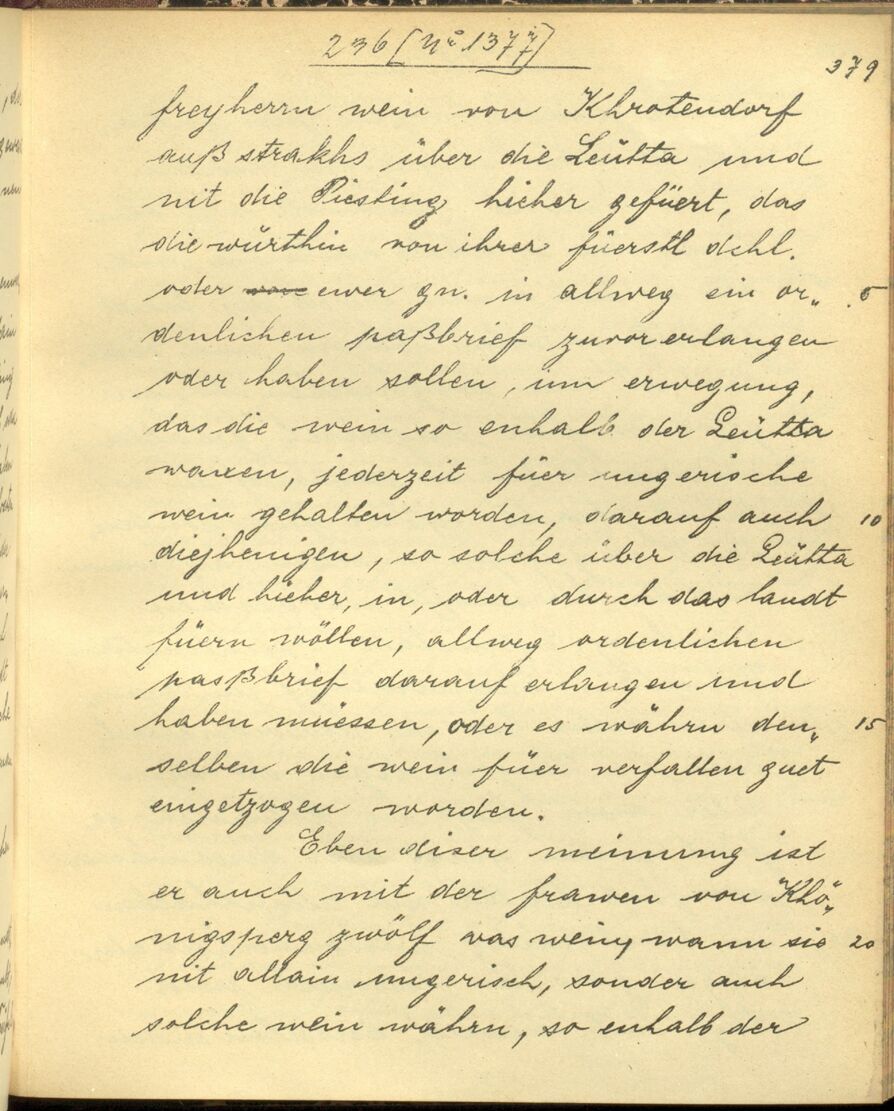 236 [Nº 1377]
379
freyherrn wein von Khrotendorf
auß strakhs über die Leütta und
nit die Piesting hieher gefüert, das
die würthin von ihrer füerstl dchl.
oder ewer gn. in allweg ein or„ 5
denlichen paßbrief zuvor erlangen
oder haben sollen, inn erwegung,
das die wein so enhalb der Leütta
waxen, jederzeit füer ungerische
wein gehalten worden, darauf auch 10
diejhenigen, so solche über die Leütta
und hieher, in, oder durch das landt
füern wöllen, allweg ordenlichen
passßbrief darauf erlangen und
haben müessen, oder es währn den„ 15
selben die wein füer verfallen guet
eingetzogen worden.
Eben diser meinung ist
er auch mit der frawen von Khö„
nigsperg zwölf vas wein, wann sie 20
nit allain ungerisch, sonder auch
solche wein währn, so enhalb der